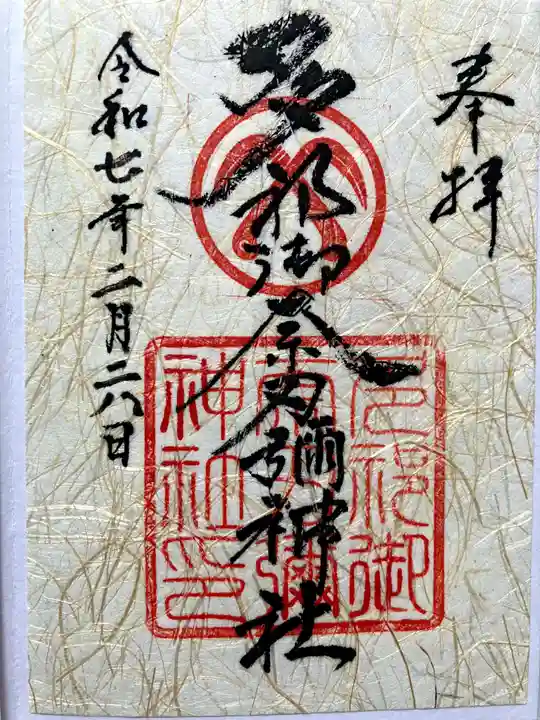 奉拝
多祁御奈刀彌神社
令和七年二月二八日
多祁御
奈刀彌
神社印